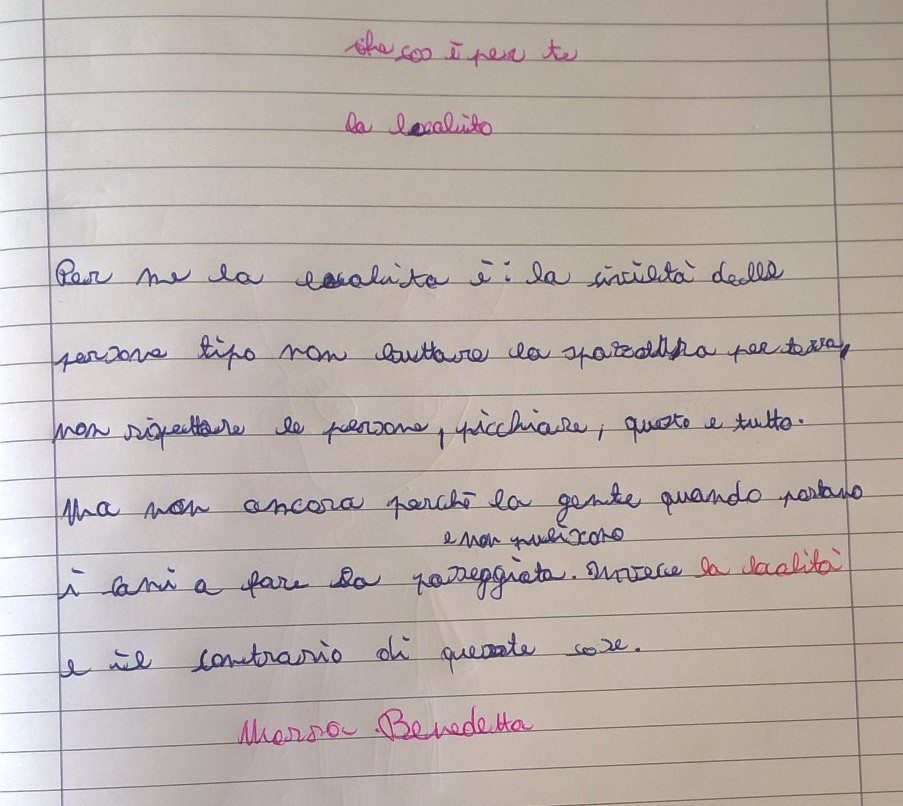 che cos è per te
la località
Per me la località è: la inciviltà delle
persone tipo non buttare la spazzatura per terra,
non rispettare le persone, picchiare, questo e tutto.
Ma non ancora perché la gente quando portano
e non puliscono
i cani a fare la passeggiata. Invece la località
e il contrario di queste cose.
Benedetta